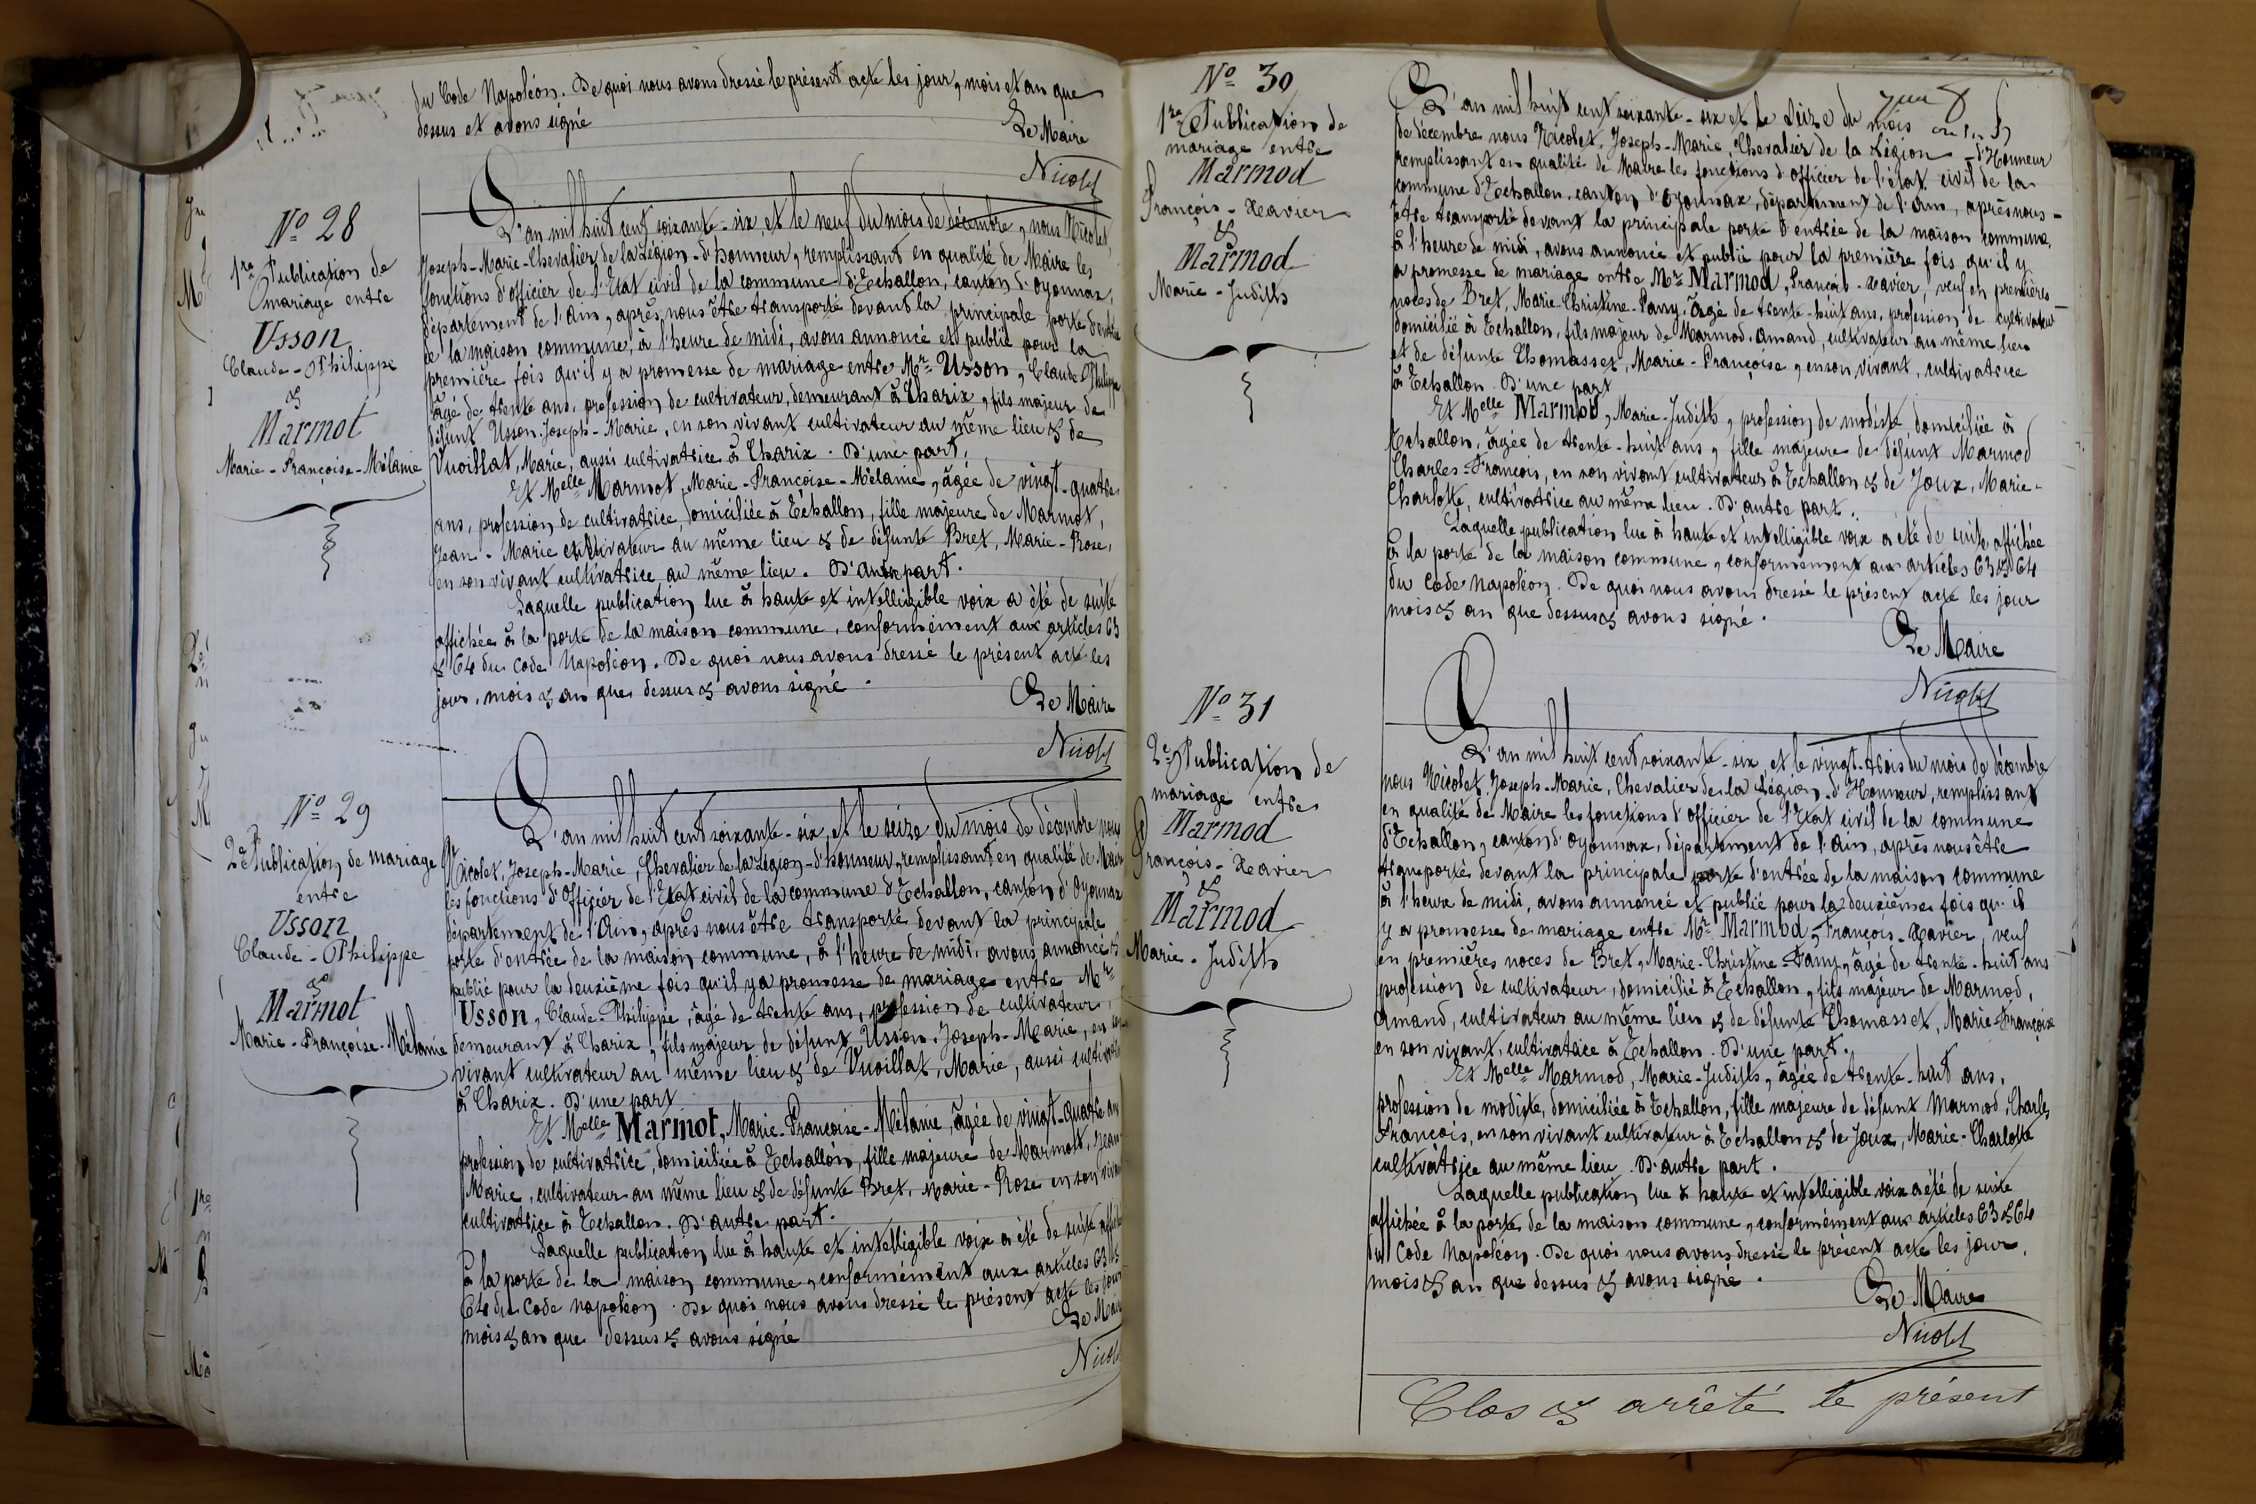 du Code Napoléon. De quoi nous avons dressé le présent acte les jour, mois et an que
dessus et avons signé
Le Maire
Nicolet
N° 28
1re Publication de
mariage entre
Usson
Claude-Philippe
&
Marmot
Marie-Françoise-Mélanie
L'an mil huit cent soixante-six, et le neuf du mois de décembre, nous Nicolet,
Joseph-Marie-Chevalier de la Légion-d'honneur, remplissant en qualité de Maire les
fonctions d'officier de l'Etat civil de la commune d'Echallon, canton d'Oyonnax,
département de l'Ain, après nous être transporté devant la principale porte d'entrée
de la maison commune, à l'heure de midi, avons annoncé et publié pour la
première fois qu'il y a promesse de mariage entre Mr Usson, Claude-Philippe
âgé de trente ans, profession de cultivateur, demeurant à Charix, fils majeur de
défunt Usson Joseph-Marie, en son vivant cultivateur au même lieu & de
Vuoillat, Marie, aussi cultivatrice à Charix. D'une part,
Et Melle Marmot, Marie-Françoise-Mélanie, âgée de vingt-quatre
ans, profession de cultivatrice, domiciliée à Echallon, fille majeure de Marmot,
Jean-Marie cultivateur au même lieu & de défunte Bret, Marie-Rose,
en son vivant cultivatrice au même lieu. D'autre part.
Laquelle publication lue à haute et intelligible voix a été de suite
affichée à la porte de la maison commune, conformément aux articles 63
& 64 du Code Napoléon. De quoi nous avons dressé le présent acte les
jour, mois & an que dessus & avons signé.
Le Maire
Nicolet
N° 29
2e Publication de mariage
entre
Usson
Claude-Philippe
&
Marmot
Marie-Françoise-Mélanie
L'an mil huit cent soixante-six, et le seize du mois de décembre nous
Nicolet, Joseph-Marie, Chevalier de la Légion-d'honneur, remplissant en qualité de Maire
les fonctions d'Officier de l'Etat civil de la commune d'Echallon, canton d'Oyonnax
département de l'Ain, après nous être transporté devant la principale
porte d'entrée de la maison commune, à l'heure de midi, avons annoncé &
publié pour la deuxième fois qu'il y a promesse de mariage entre Mr
Usson, Claude-Philippe, âgé de trente ans, profession de cultivateur,
demeurant à Charix, fils majeur de défunt Usson, Joseph-Marie, en son
vivant cultivateur au même lieu & de Vuoillat, Marie, aussi cultivatrice
à Charix. D'une part
Et Melle Marmot, Marie-Françoise-Mélanie, âgée de vingt-quatre ans
profession de cultivatrice, domiciliée à Echallon, fille majeure de Marmott, Jean-
Marie, cultivateur au même lieu & de défunte Bret, Marie-Rose en son vivant
cultivatrice à Echallon. D'autre part.
Laquelle publication lue à haute et intelligible voix a été de suite affichée
à la porte de la maison commune, conformément aux articles 63 &
64 du Code Napoléon. De quoi nous avons dressé le présent acte les jour
mois & an que dessus & avons signé
Le Maire
Nicolet
N° 30
1re Publication de
mariage entre
Marmod
François-Xavier
&
Marmod
Marie-Judith
L'an mil huit cent soixante-six et le seize du mois
de décembre nous Nicolet, Joseph-Marie, Chevalier de la Légion-d'Honneur
remplissant en qualité de Maire les fonctions d'officier de l'état civil de la
commune d'Echallon, canton d'Oyonnax, département de l'Ain, après nous-
être transporté devant la principale porte d'entrée de la maison commune,
à l'heure de midi, avons annoncé et publié pour la première fois qu'il y
a promesse de mariage entre Mr Marmod, François-Xavier, veuf en premières-
noces de Bret, Marie-Christine-Fany, âgé de trente-huit ans, profession de cultivateur
domicilié à Echallon, fils majeur de Marmod, Amand, cultivateur au même lieu
et de défunte Thomasset, Marie-Françoise, en son vivant, cultivatrice
à Echallon. D'une part
Et Melle Marmod, Marie-Judith, profession de modiste, domiciliée à
Echallon, âgée de trente-huit ans, fille majeure de défunt Marmod
Charles-François, en son vivant cultivateur à Echallon & de Joux, Marie-
Charlotte, cultivatrice au même lieu. D'autre part.
Laquelle publication lue à haute et intelligible voix a été de suite affichée
à la porte de la maison commune, conformément aux articles 63 & 64
du Code Napoléon. De quoi nous avons dressé le présent acte les jour
mois & an que dessus & avons signé.
Le Maire
Nicolet
N° 31
2e Publication de
mariage entre
Marmod
François-Xavier
&
Marmod
Marie-Judith
L'an mil huit cent soixante-six, et le vingt-trois du mois de décembre
nous Nicolet, Joseph-Marie, Chevalier de la Légion-d'Honneur, remplissant
en qualité de Maire les fonctions d'officier de l'Etat civil de la commune
d'Echallon, canton d'Oyonnax, département de l'Ain, après nous être
transporté devant la principale porte d'entrée de la maison commune
à l'heure de midi, avons annoncé et publié pour la deuxième fois qu'il
y a promesse de mariage entre Mr Marmod, François-Xavier, veuf
en premières noces de Bret, Marie-Christine-Fany, âgé de trente-huit ans
profession de cultivateur, domicilié à Echallon, fils majeur de Marmod,
Amand, cultivateur au même lieu & de défunte Thomasset, Marie-Françoise
en son vivant, cultivatrice à Echallon. D'une part.
Et Melle Marmod, Marie-Judith, âgée de trente-huit ans,
profession de modiste, domiciliée à Echallon, fille majeure de défunt Marmod, Charles
François, en son vivant cultivateur à Echallon & de Joux, Marie-Charlotte
cultivatrice au même lieu. D'autre part.
Laquelle publication lue à haute et intelligible voix a été de suite
affichée à la porte de la maison commune, conformément aux articles 63 & 64
du Code Napoléon. De quoi nous avons dressé le présent acte les jour,
mois & an que dessus & avons signé.
Le Maire
Nicolet
Clos & arrêté le présent